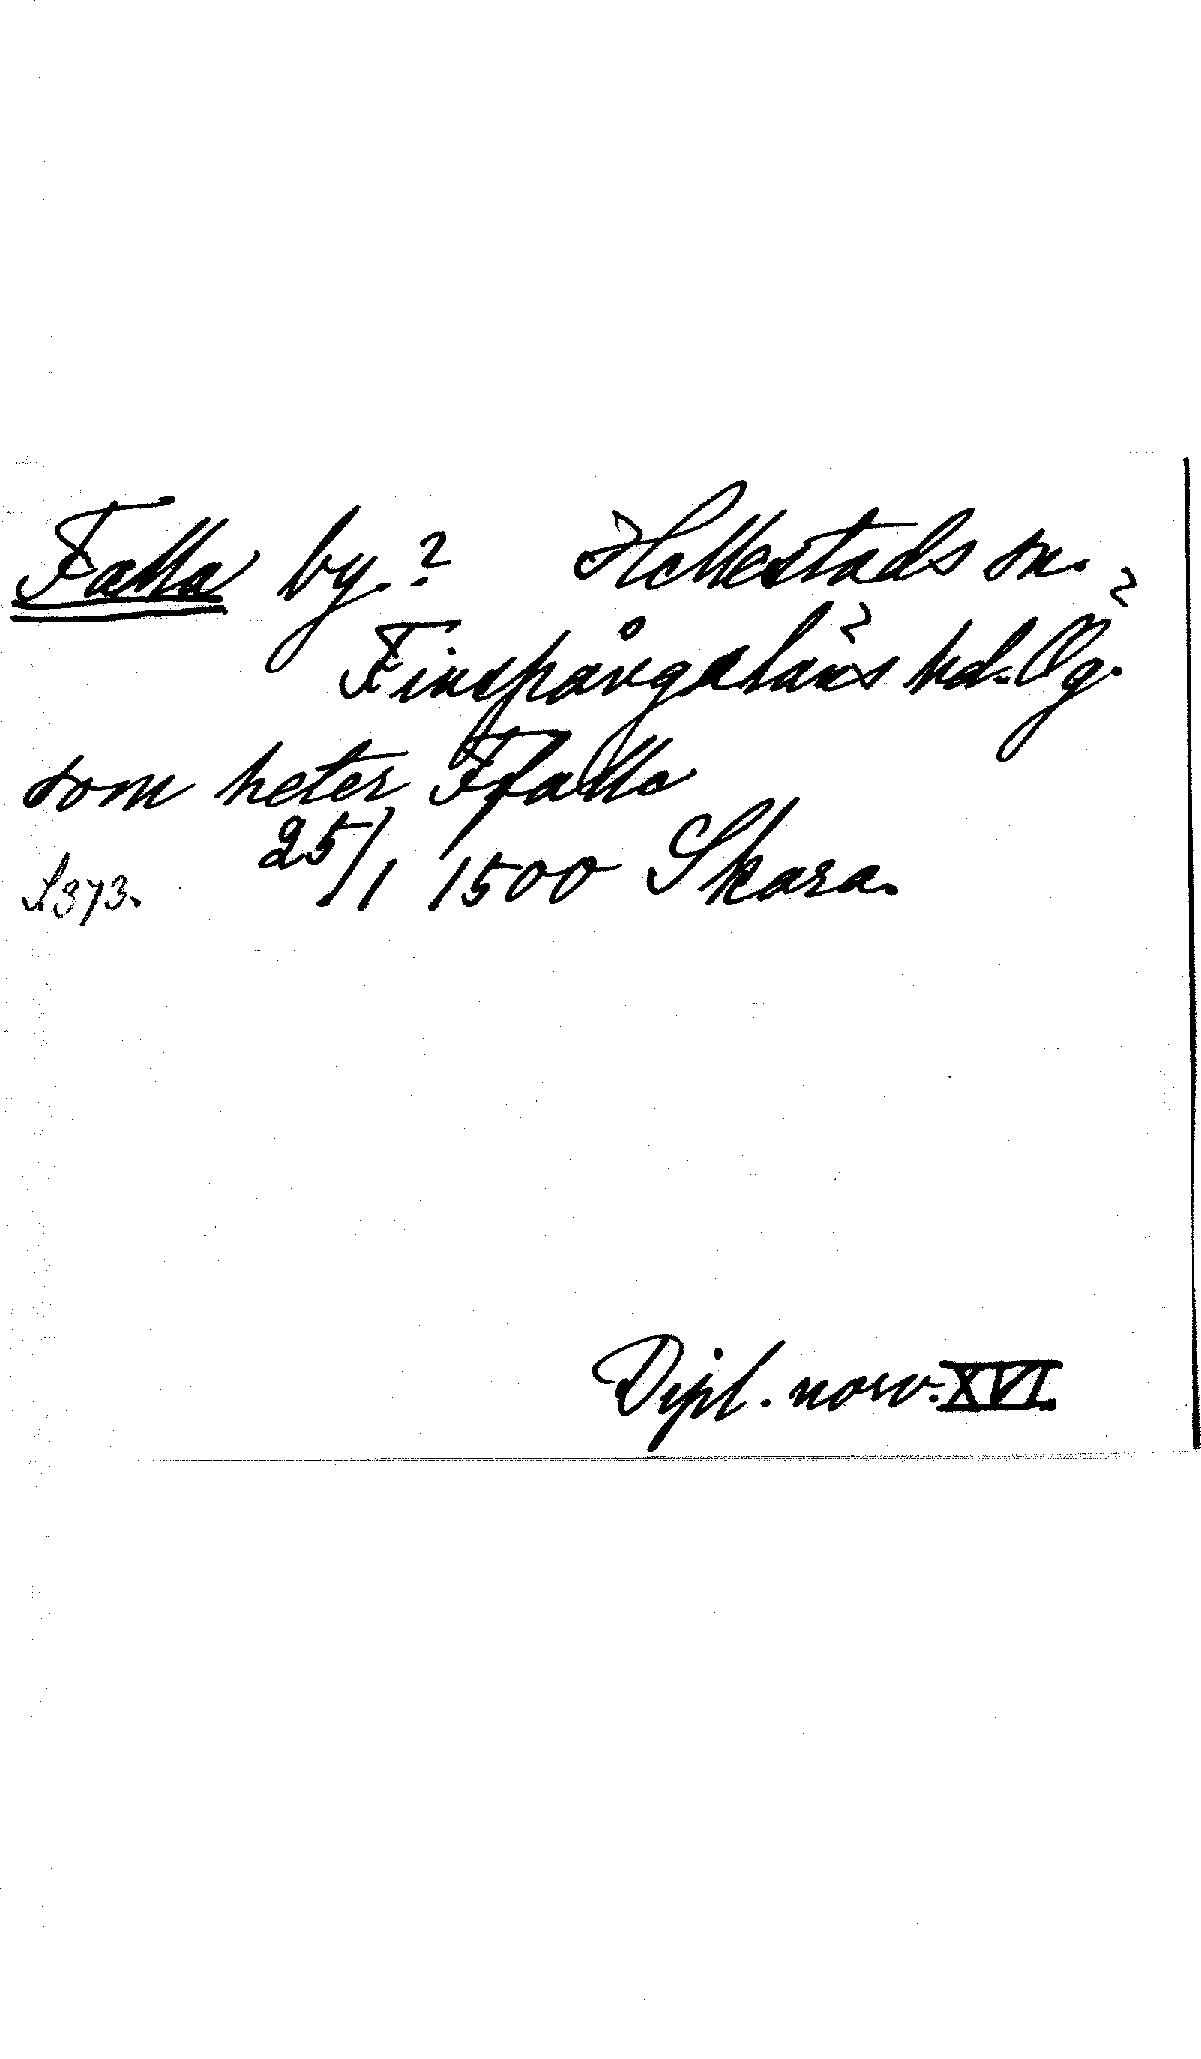 Falla by.? Hellestads sn.
Finspångaläns hd. Ög.
som heter Ffalla
S. 373. 25/1 1500 Skara.
Dipl. norv. XVI.